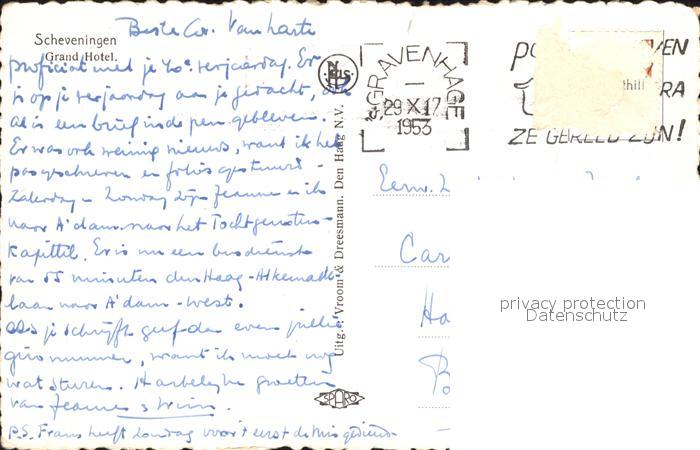 Scheveningen
Grand Hotel.
Beste Cor. Van harte
proficiat met je 40e verjaardag. Er
is op je verjaardag aan je gedacht,
al is een brief in de pen gebleven.
Er was ook weinig nieuws, want ik heb
pas geschreven en foto's gestuurd.
Zaterdag en Zondag zijn Jeanne en ik
naar A'dam naar het
Kapittel. Er is nu een busdienst
van 55 minuten den Haag -
laan naar A'dam-West.
Als je schrijft geef dan even jullie
giro nummer, want ik moet nog
wat sturen. Hartelijke groeten
van Jeanne & Wim.
P.S. Frans heeft Zondag voor 't eerst de Mis gediend.
Uitg.: Vroom & Dreesmann. Den Haag N.V.
SPARO
'S GRAVENHAGE
29 X 17
1953
PO VEN
RA
ZE GEREED ZIJN!
Eerw.
Car
Ha
privacy protection
Datenschutz